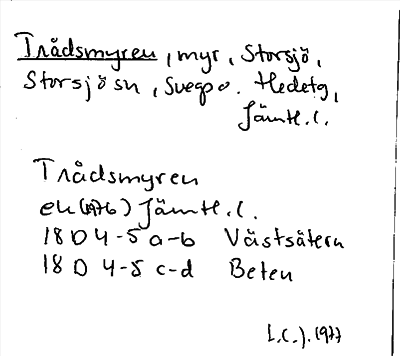 Trådsmyren, myr, Storsjö,
Storsjö sn, Svegs po. Hedetg,
Jämtl. l.
Trådsmyren
ek (1976) Jämtl. l.
18 D 4-5 a-b Västsätern
18 D 4-5 c-d Beten
L.C.J. 1977